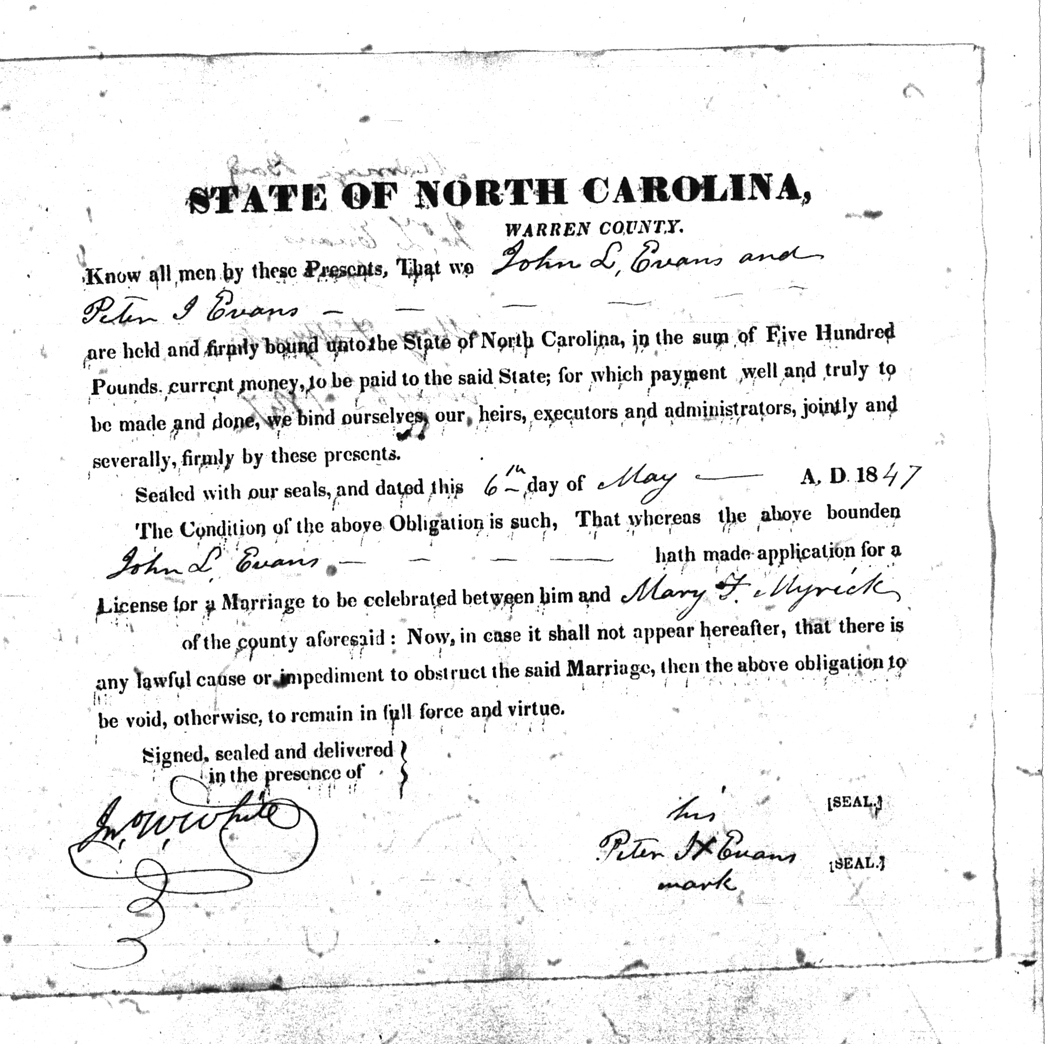 STATE OF NORTH CAROLINA,
WARREN COUNTY.
Know all men by these Presents, That we John L, Evans and
Peter I Evans — — — — —
are held and firmly bound unto the State of North Carolina, in the sum of Five Hundred
Pounds. current money, to be paid to the said State; for which payment well and truly to
be made and done, we bind ourselves, our, heirs, executors and administrators, jointly and
severally, firmly by these presents.
Sealed with our seals, and dated this 6th day of May — A. D. 1847
The Condition of the above Obligation is such, That whereas the above bounden
John L. Evans — — — — hath made application for a
License for a Marriage to be celebrated between him and Mary F. Myrick
of the county aforesaid: Now, in case it shall not appear hereafter, that there is
any lawful cause or impediment to obstruct the said Marriage, then the above obligation to
be void, otherwise, to remain in full force and virtue.
Signed, sealed and delivered }
in the presence of
Jno. W. White
his [SEAL.]
Peter I X Evans [SEAL.]
mark